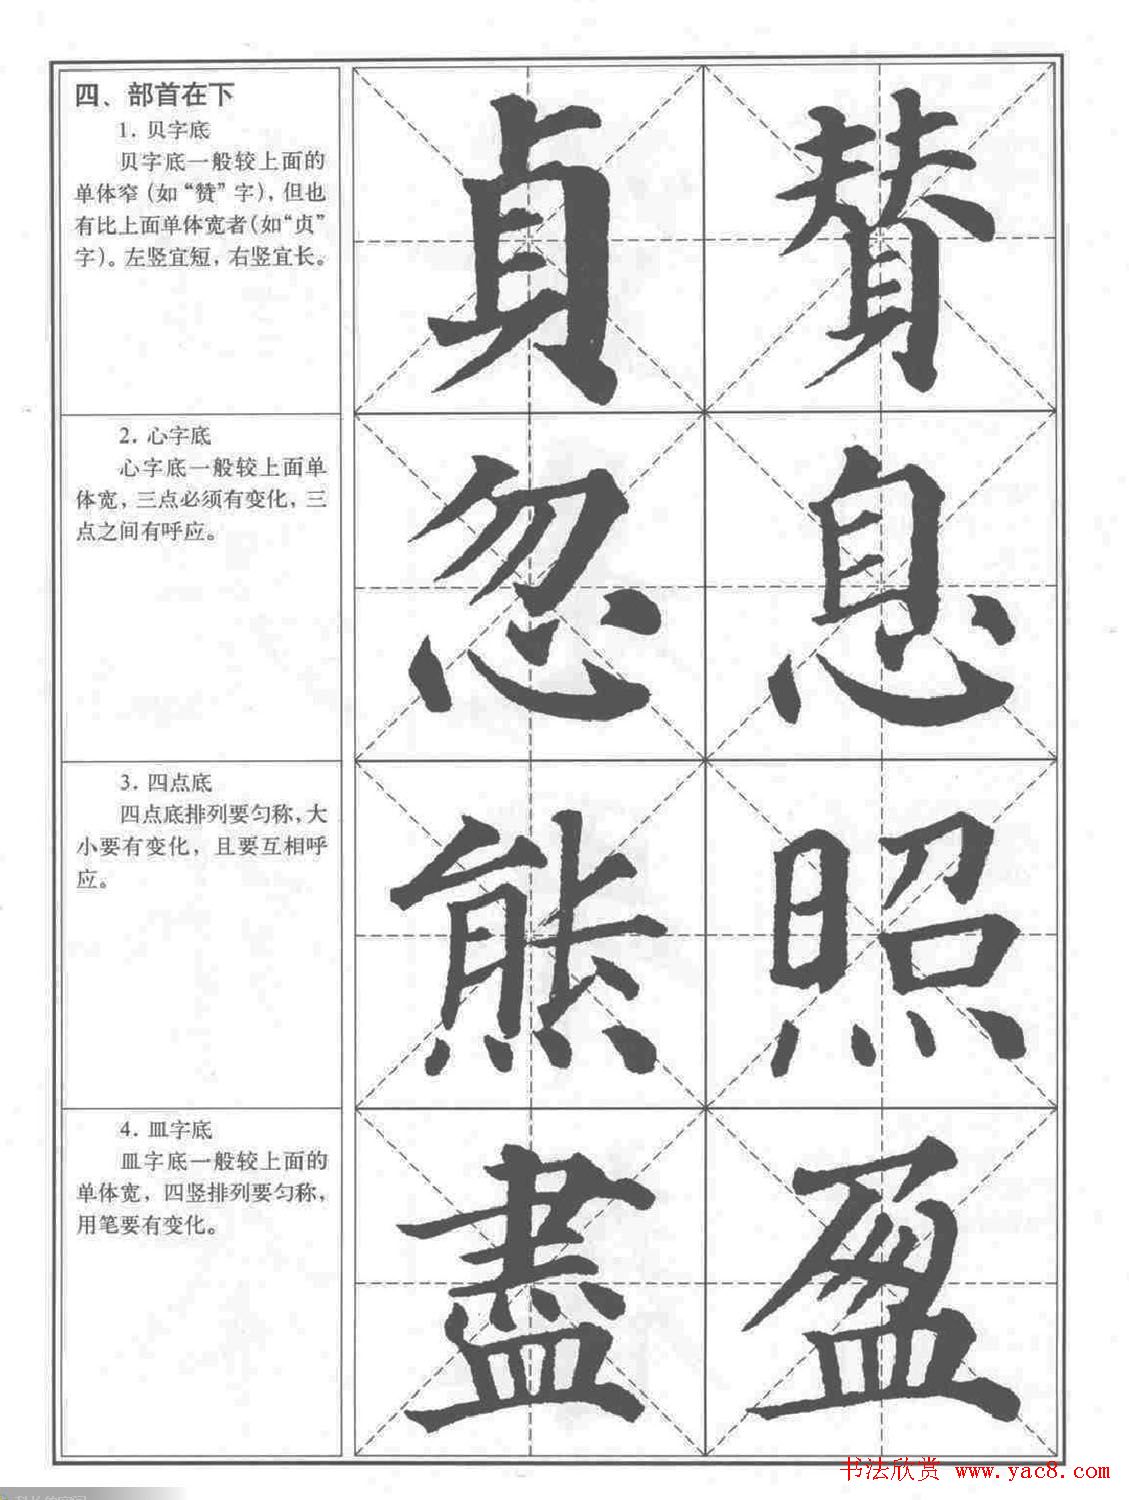 四、部首在下
1. 贝字底
贝字底一般较上面的
单体窄(如“赞”字),但也
有比上面单体宽者(如“贞”
字)。左竖宜短,右竖宜长。
貞 賛
2. 心字底
心字底一般较上面单
体宽,三点必须有变化,三
点之间有呼应。
忽 息
3. 四点底
四点底排列要匀称,大
小要有变化,且要互相呼
应。
熊 照
4. 皿字底
皿字底一般较上面的
单体宽,四竖排列要匀称,
用笔要有变化。
盡 盈
书法欣赏 www.yac8.com